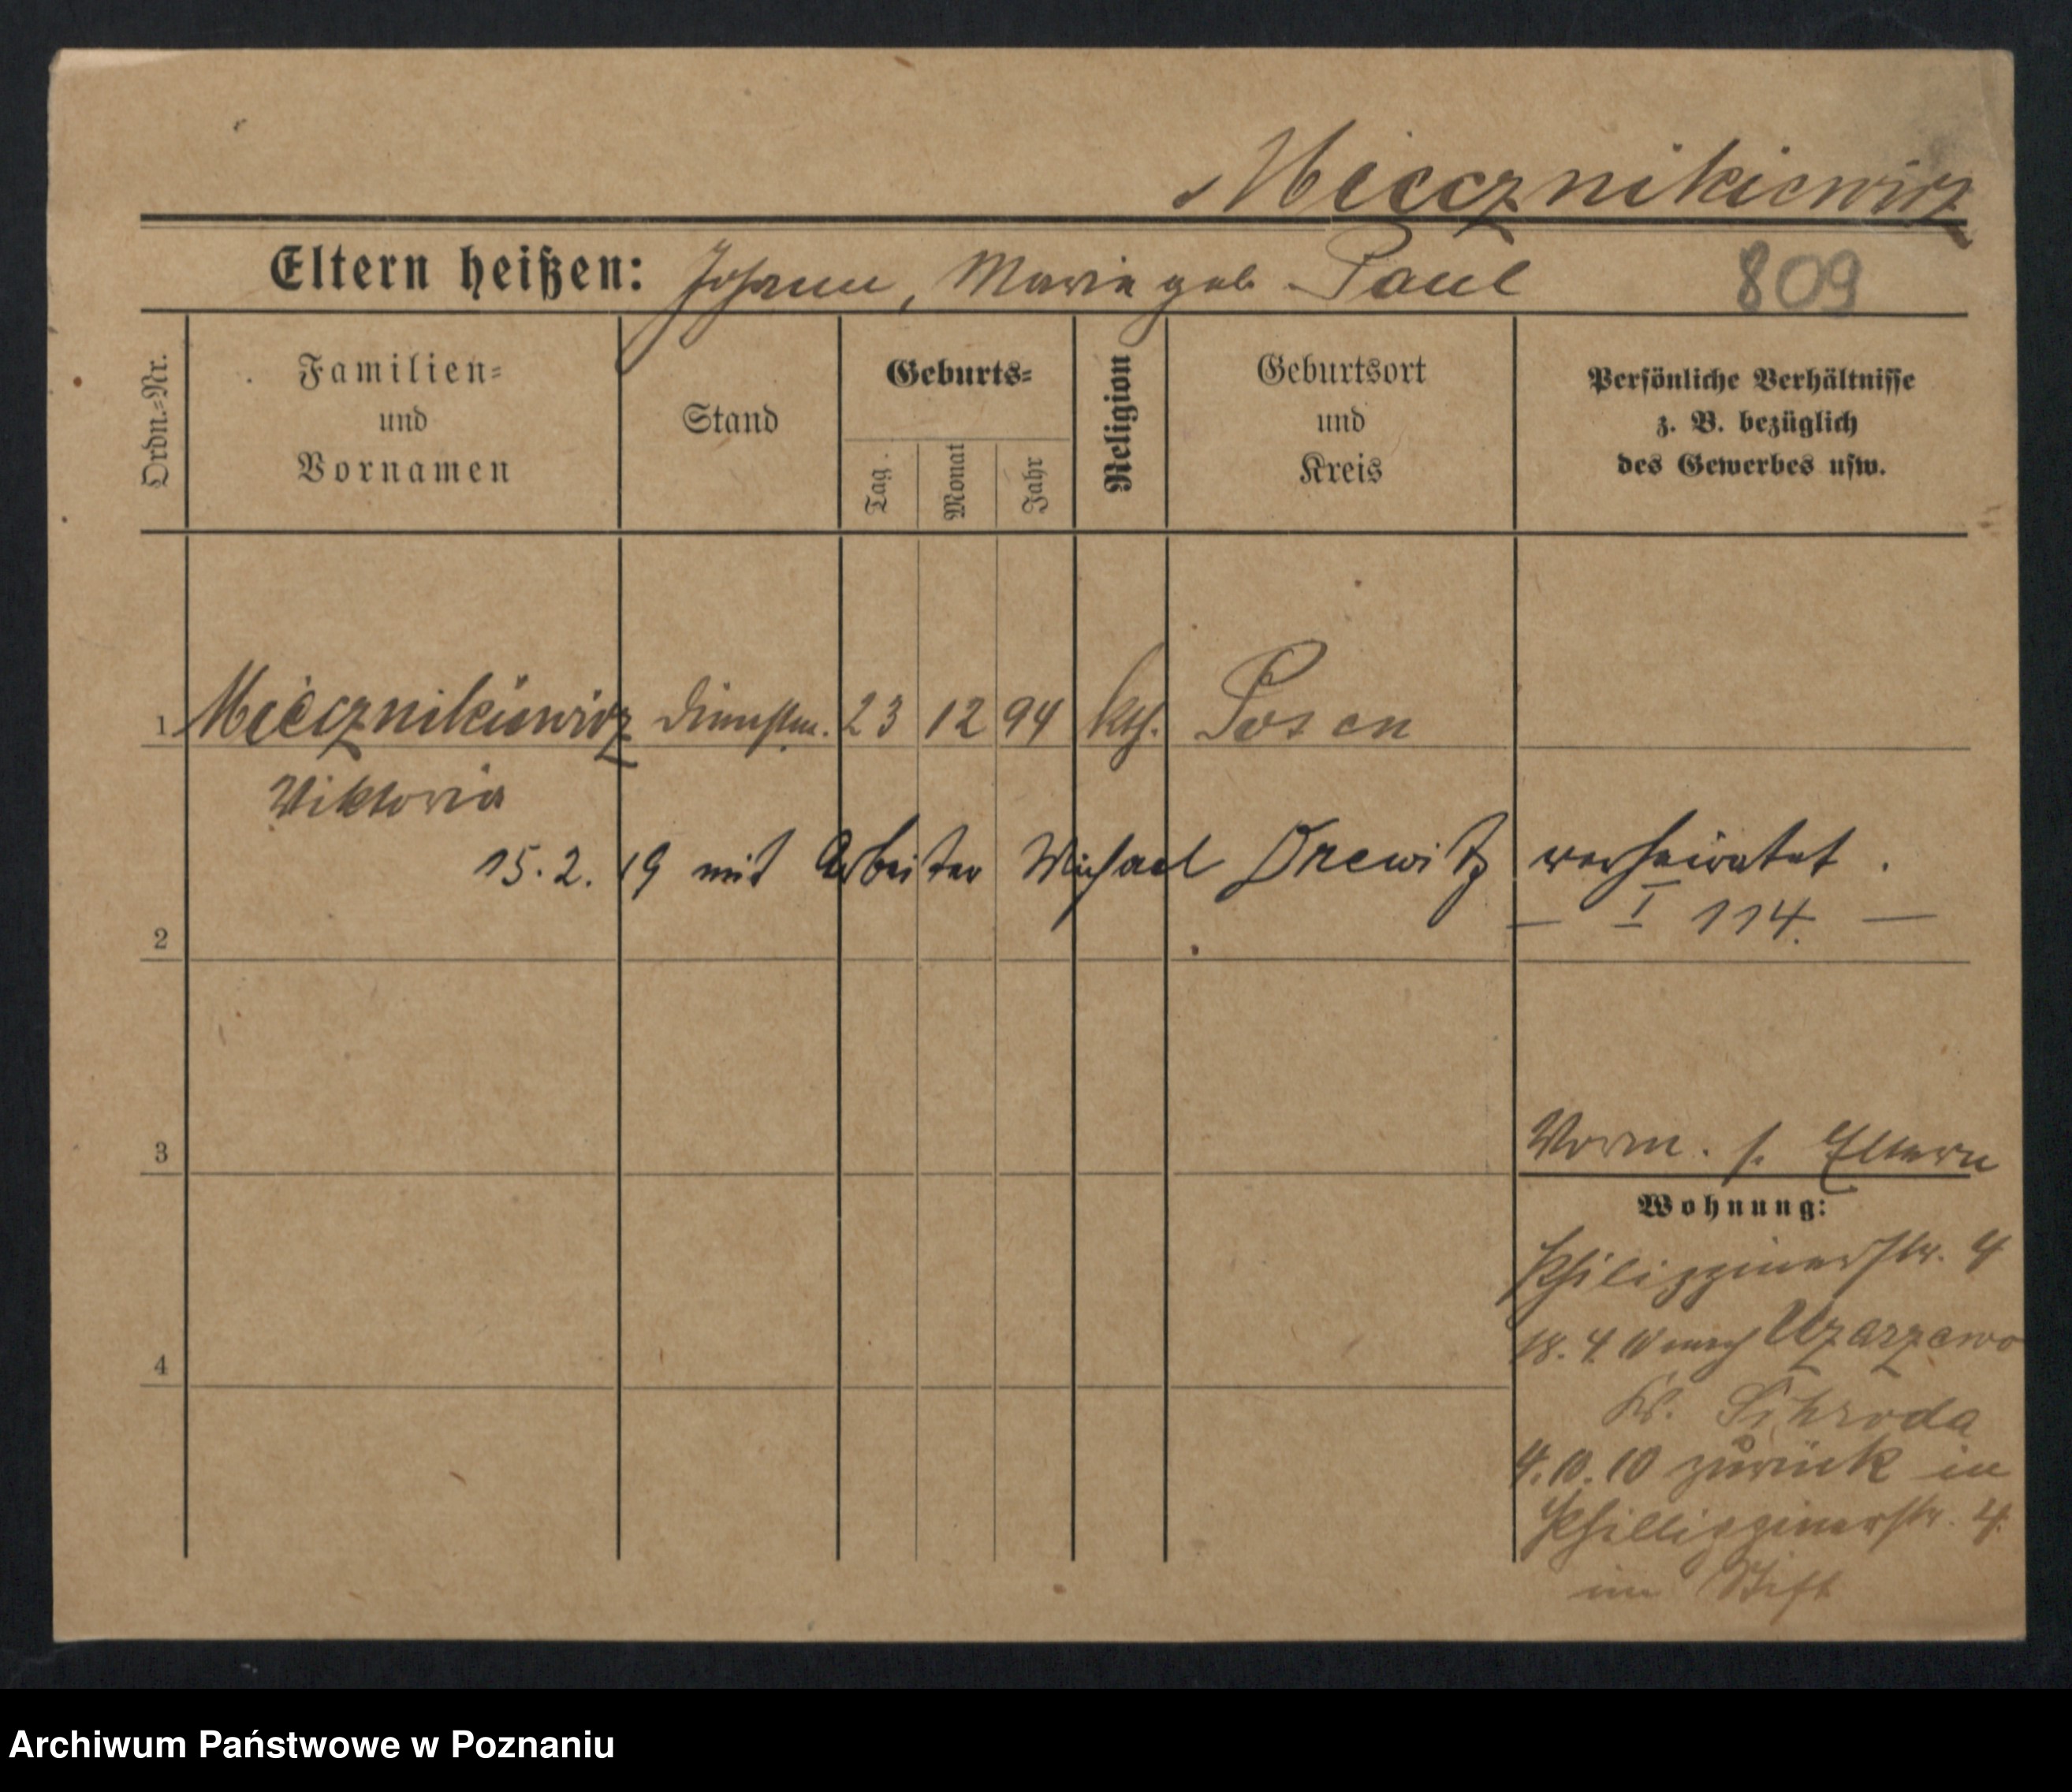 Miecznikiewicz
Eltern heißen: Johann, Maria geb. Paul 809
Ordn.-Nr.
Familien-
und
Vornamen
Stand
Geburts-
Tag.
Monat
Jahr
Religion
Geburtsort
und
Kreis
Persönliche Verhältnisse
z. B. bezüglich
des Gewerbes usw.
1 Miecznikiewicz Dienstm. 23 12 94 kth. Posen
Viktoria
15.2.19 mit Arbeiter Michael Drewitz verheiratet.
— I 114. —
2
3
Vorm. s. Eltern
Wohnung:
Philippinerstr. 4
18.4.10 nach Uzarzewo
4
Kr. Schroda
4.10.10 zurück in
Phillippinerstr. 4.
im Stift
Archiwum Państwowe w Poznaniu